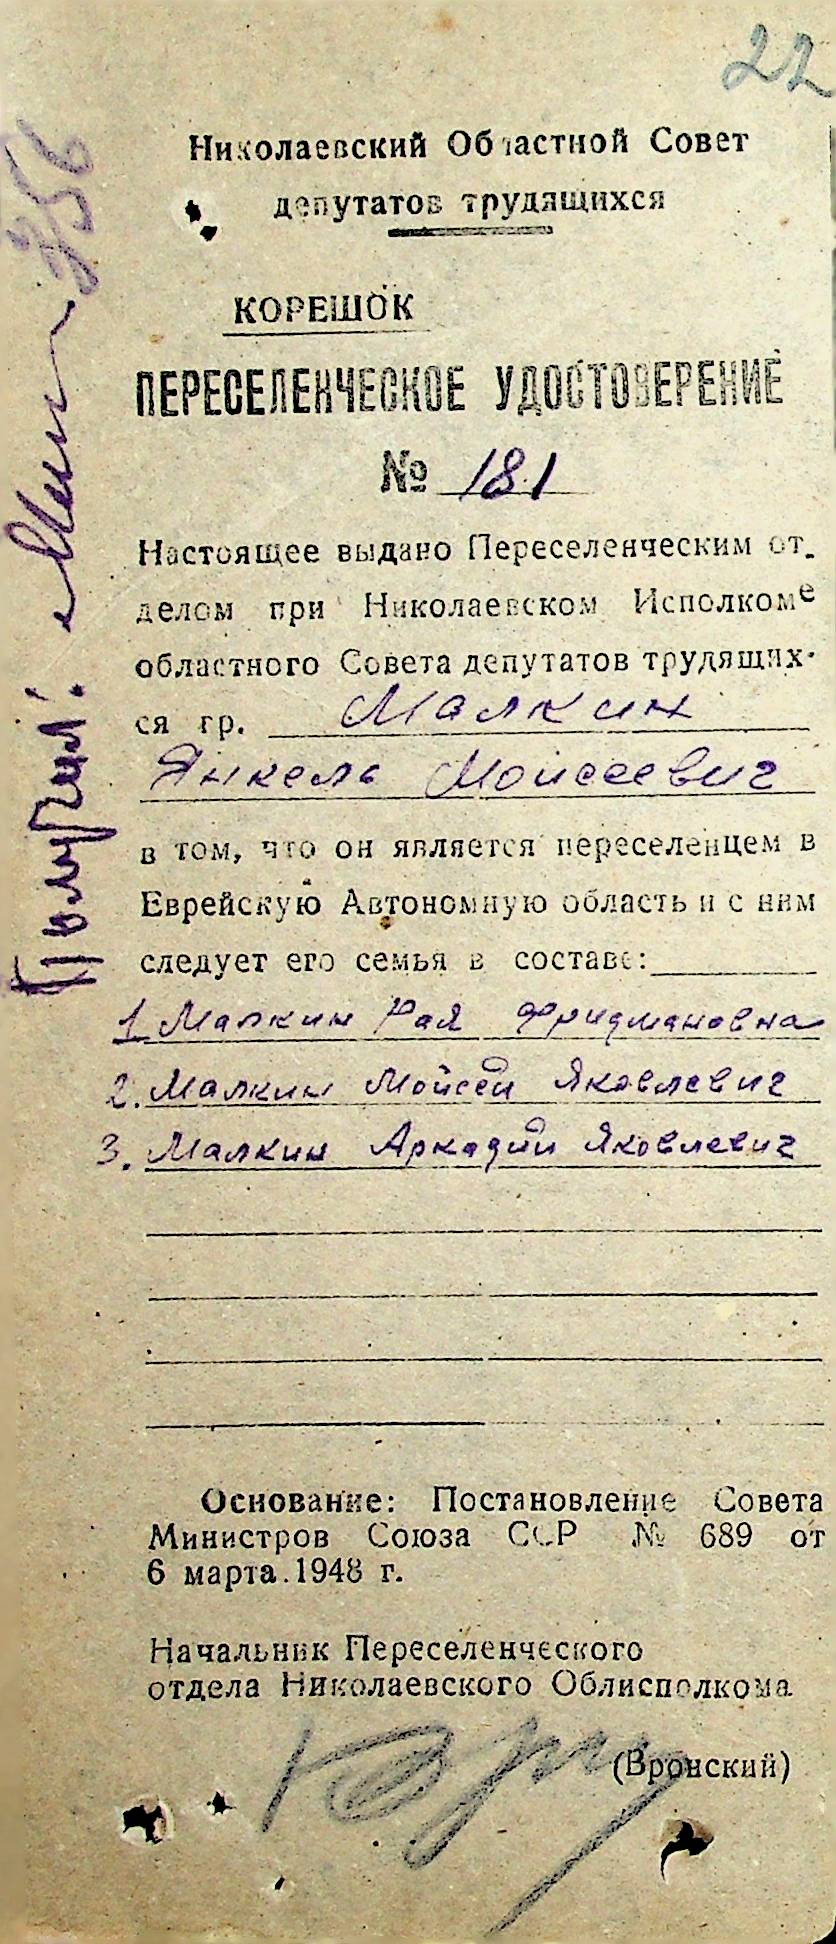 22
Николаевский Областной Совет
депутатов трудящихся
КОРЕШОК
ПЕРЕСЕЛЕНЧЕСКОЕ УДОСТОВЕРЕНИЕ
№ 181
Настоящее выдано Переселенческим от-
делом при Николаевском Исполкоме
областного Совета депутатов трудящих-
ся гр. Малкин
Янкель Моисеевич
в том, что он является переселенцем в
Еврейскую Автономную область и с ним
следует его семья в составе:
1 Малкин Рая Фридмановна
2. Малкин Мойсей Яковлевич
3. Малкин Аркадий Яковлевич
Основание: Постановление Совета
Министров Союза ССР № 689 от
6 марта 1948 г.
Начальник Переселенческого
отдела Николаевского Облисполкома
(Вронский)
Получил: